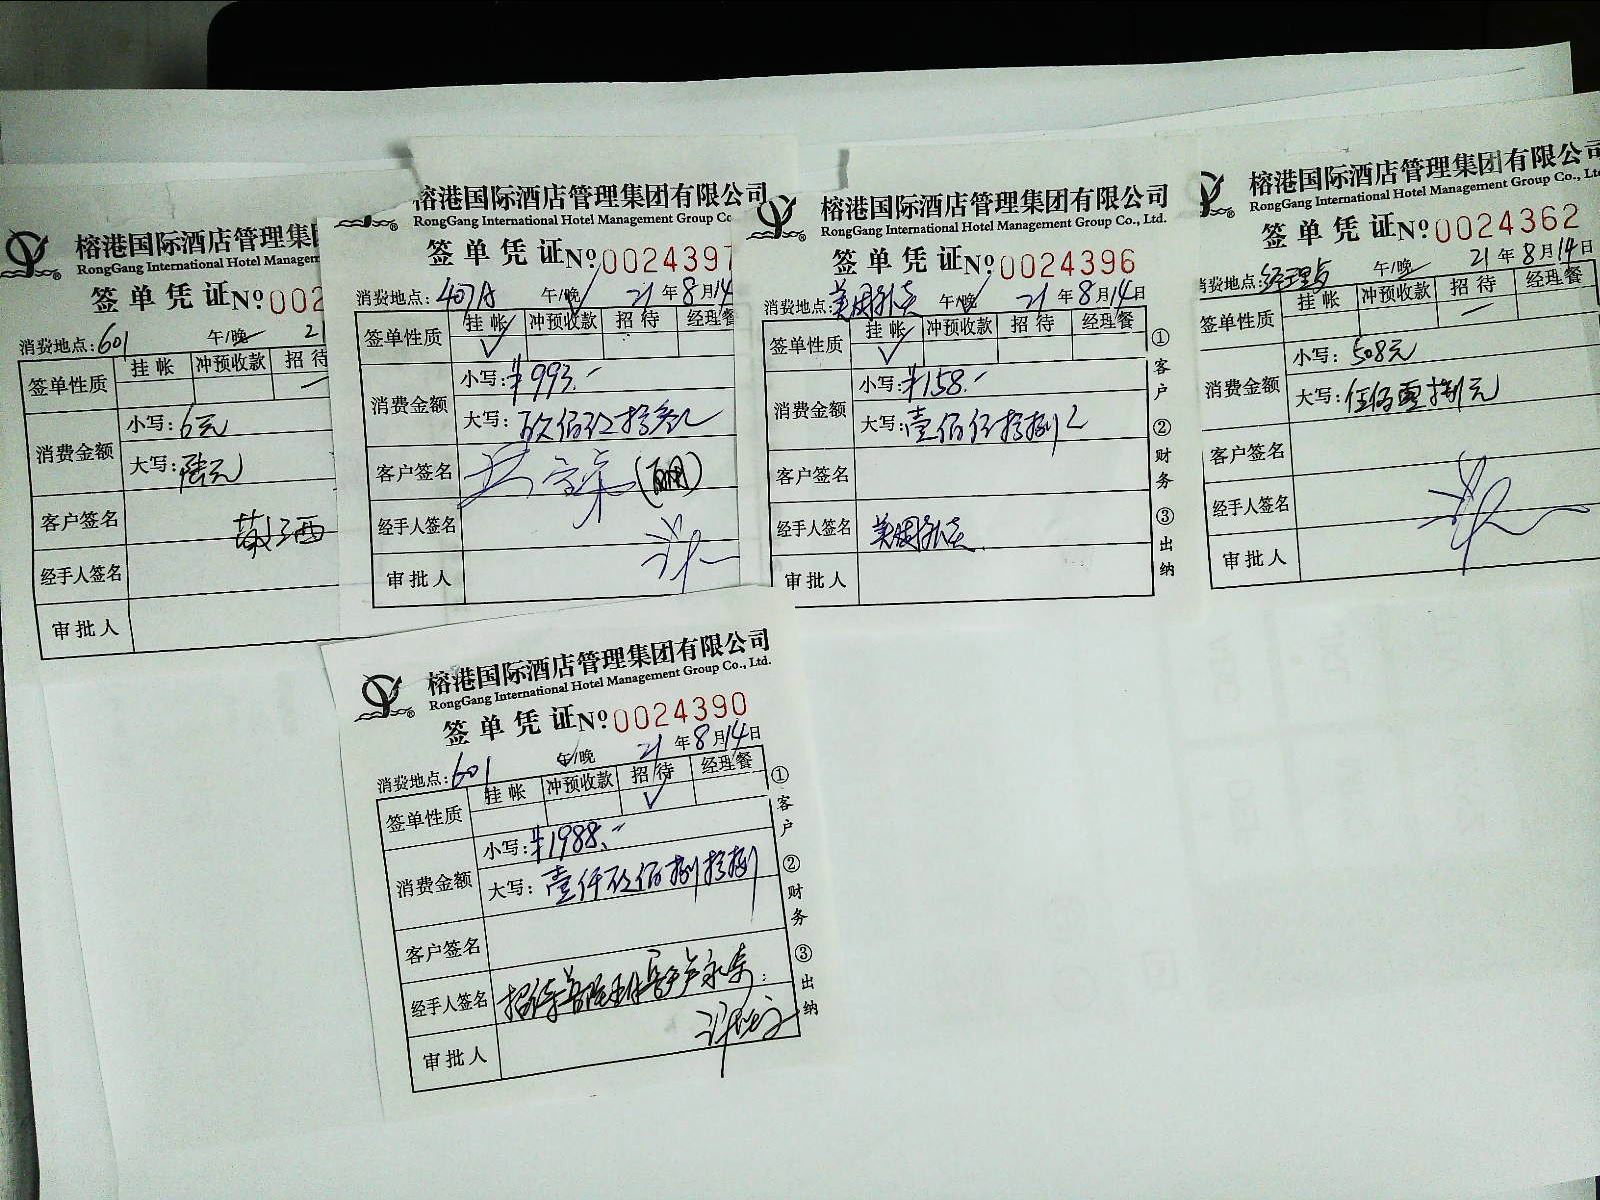 榕港国际酒店管理集团
RongGang International Hotel Managem
签单凭证No.002
消费地点:601 午/晚 2
签单性质 挂帐 冲预收款 招待
消费金额 小写:6元
大写:陆元
客户签名 敬酒
经手人签名
审批人
榕港国际酒店管理集团有限公司
RongGang International Hotel Management Group Co
签单凭证No.0024397
消费地点:407A 午/晚 21年8月14
签单性质 挂帐 冲预收款 招待 经理餐
✓
消费金额 小写:¥993.-
大写:玖佰玖拾叁元
客户签名
经手人签名
审批人
榕港国际酒店管理集团有限公司
RongGang International Hotel Management Group Co., Ltd.
签单凭证No.0024396
消费地点:美团外卖 午/晚 21年8月14日
签单性质 挂帐 冲预收款 招待 经理餐
✓
消费金额 小写:¥158.-
大写:壹佰伍拾捌元
客户签名
经手人签名 美团外卖
审批人
①客户 ②财务 ③出纳
榕港国际酒店管理集团有限公司
RongGang International Hotel Management Group Co., Lt
签单凭证No.0024362
消费地点:经理 午/晚 21年8月14日
签单性质 挂帐 冲预收款 招待 经理餐
消费金额 小写:508元
大写:伍佰零捌元
客户签名
经手人签名
审批人
榕港国际酒店管理集团有限公司
RongGang International Hotel Management Group Co., Ltd.
签单凭证No.0024390
消费地点:601 午/晚 21年8月14日
签单性质 挂帐 冲预收款 招待 经理餐
✓
消费金额 小写:¥1988.-
大写:壹仟玖佰捌拾捌
客户签名
经手人签名 招待
审批人
①客户 ②财务 ③出纳